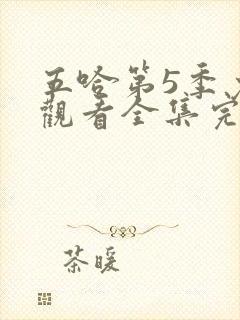 五哈第5季
觀看全集完
茶暖